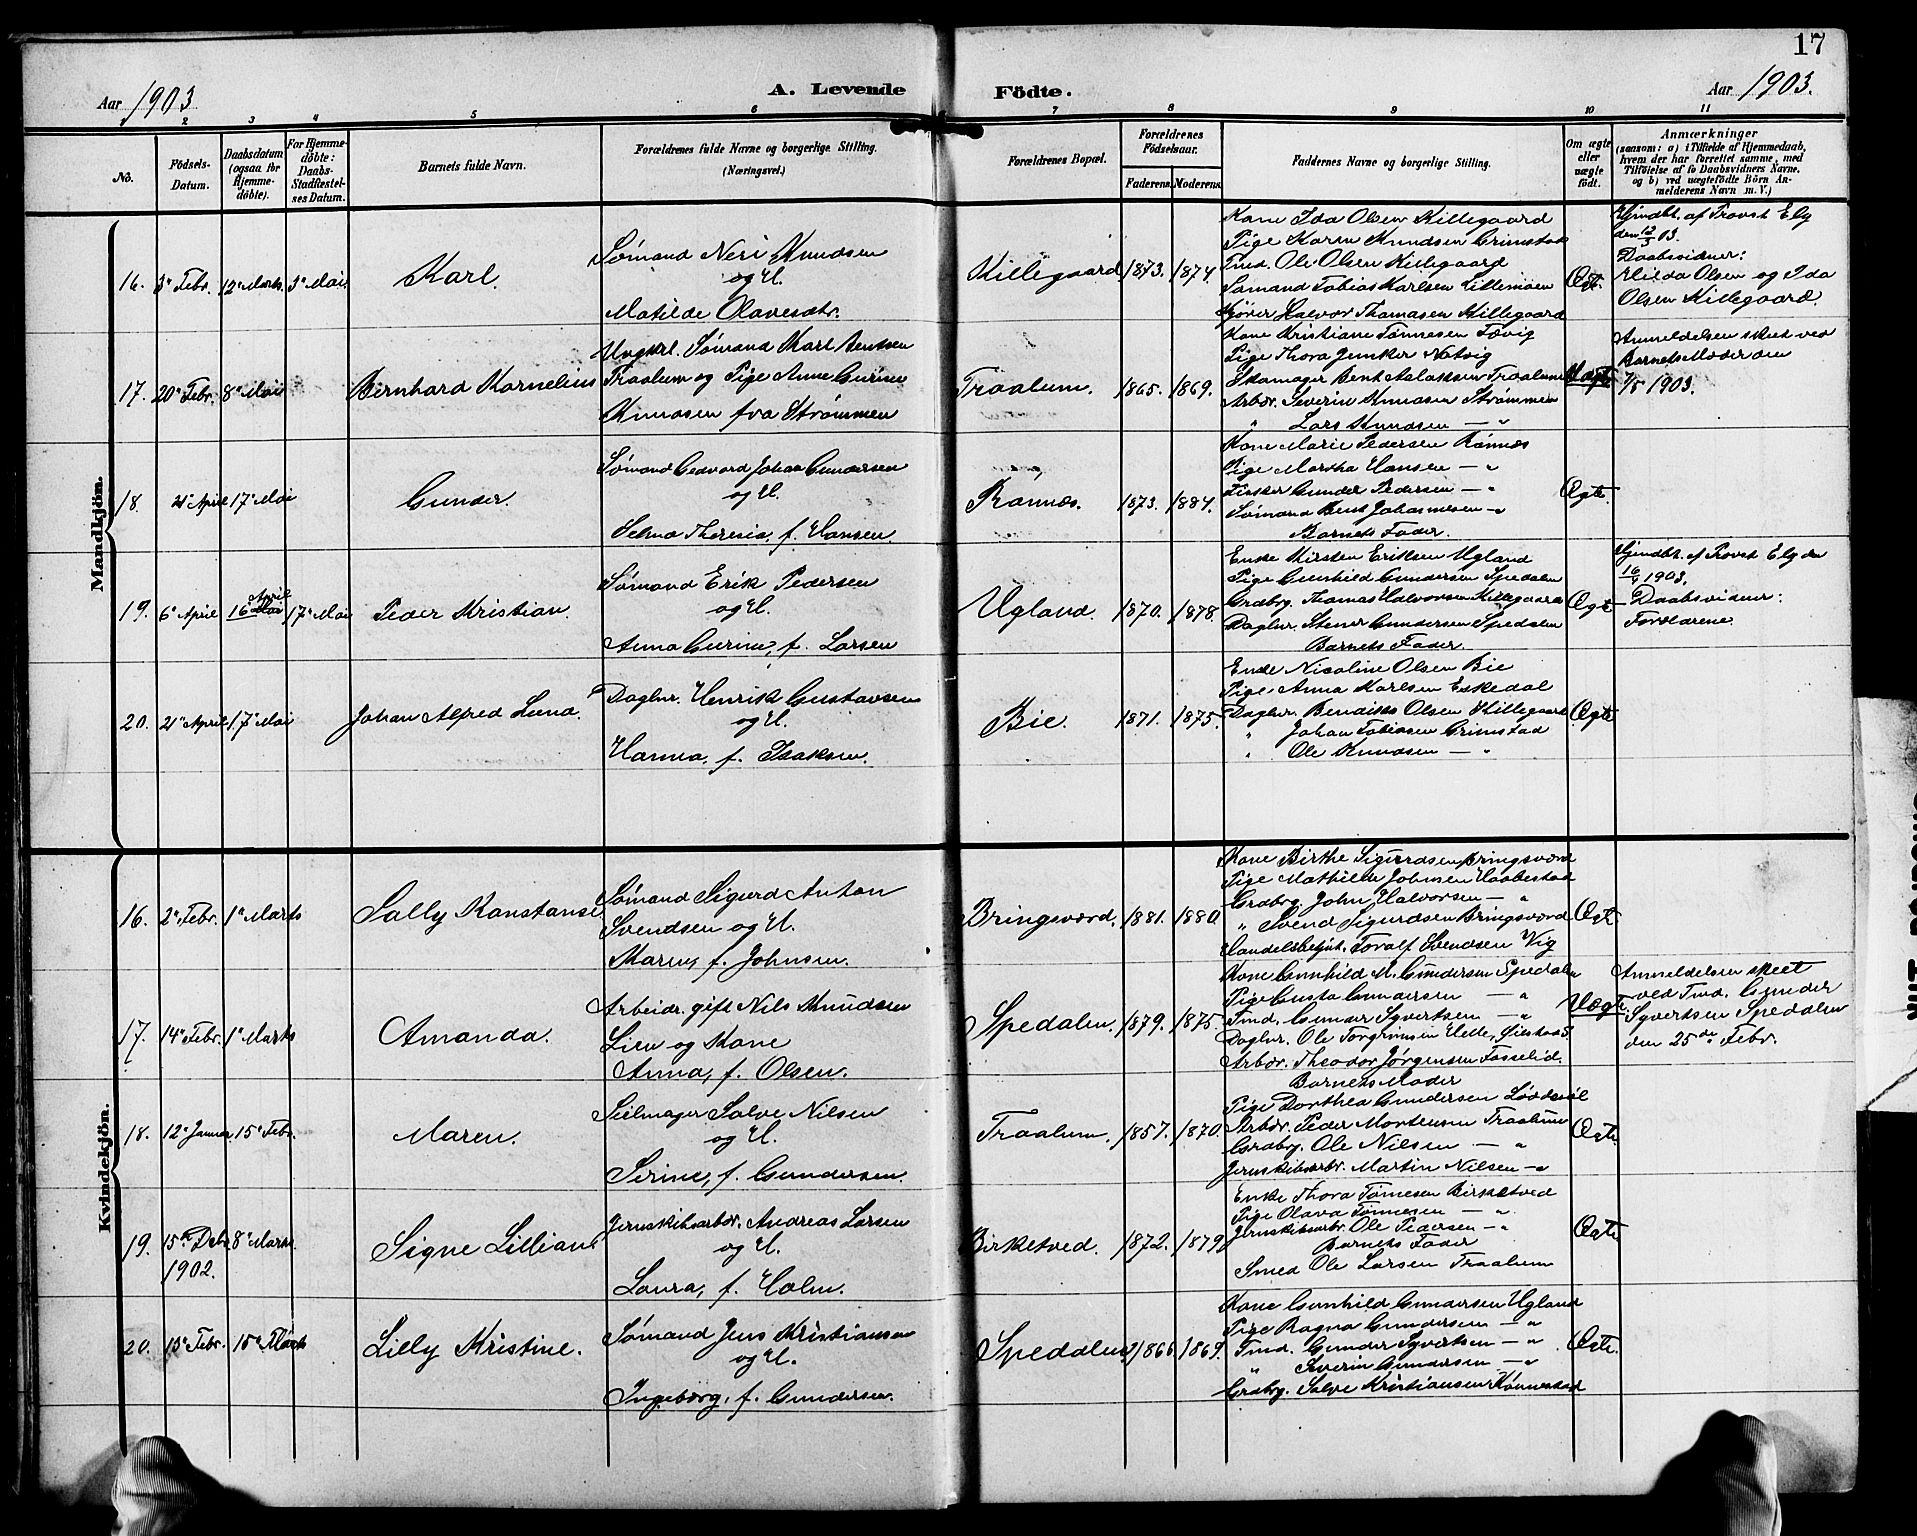 17
Aar 1903
A. Levende
Födte.
Aar 1903.
2 3 4 5 6 7 8 9 10 11
No.
Födsels-Datum.
Daabsdatum (ogsaa for Hjemmedöbte).
For Hjemmedöbte: Daabs-Stadfæstelses Datum.
Barnets fulde Navn.
Forældrenes fulde Navne og borgerlige Stilling. (Næringsvei.)
Forældrenes Bopæl.
Forældrenes Födselsaar.
Faderens. Moderens.
Faddernes Navne og borgerlige Stilling.
Om ægte eller uægte födt.
Anmærkninger
(saasom: a) i Tilfælde af Hjemmedaab,
hvem der har forrettet samme, med
Tilföielse af to Daabsvidners Navne.
og b) ved uægtefödte Börn An-
melderens Navn m. V.)
Mandkjön.
16. 3die Febr. 12te Marts. 3die Mai Karl.
Sømand Neri Knudsen
og H.
Mathilde Olavesdtr.
Killegaard 1873. 1874.
Kone Ida Olsen Killegaard
Pige Karen Knudsen Grimstad
Tmd. Ole Olsen Killegaard
Sømand Tobias Karlsen Lillemoen
Halvor Thomasen Killegaard
Ægte.
Hjmdbt. af Provst Ely
den 12/3 03.
Daabsvidner:
Hilda Olsen og Ida
Olsen Killegaard.
17. 20de Febr. 8de Mai Bernhard Kornelius
Ungkrl. Sømand Karl Bentsen
Traalum og Pige Anne Gurine
Knudsen fra Strømmen
Traalum. 1865. 1869.
Kone Kristiane Tønnesen Fævig
Pige Thora Jensker Natvig
Skomager Bent Aslaksen Traalum
Arbdr. Severin Knudsen Strømmen
" Lars Knudsen — "
Uægte
Anmeldelsen skeet ved
Barnets Moder den
7/5 1903.
18. 2den April 17de Mai Gunder.
Sømand Gedvard Johan Gundersen
og H.
Selma Theresia, f. Hansen.
Rønnæs. 1873. 1884.
Kone Marie Pedersen Rønnæs
Pige Martha Hansen — "
Fisker Gunder Pedersen — "
Sømand Bent Johannesen — "
Barnets Fader.
Ægte.
19. 6te April 16de April Mai 17de Mai Peder Kristian.
Sømand Erik Pedersen
og H.
Anna Gurine, f. Larsen
Ugland. 1870. 1878.
Enke Kirsten Eriksen Ugland
Pige Gunhild Gundersen Spedalen
Grdbrg. Thomas Halvorsen Killegaard
Daglnr. Stener Gundersen Spedalen
Barnets Fader.
Ægte
Hjmdbt. af Provst Ely den
16/4 1903.
Daabsvidner:
Forældrene.
20. 2den April 17de Mai Johan Alfred Lund.
Daglnr. Henrik Gustavsen
og H.
Hanna, f. Isaksen.
Bie. 1871. 1875.
Enke Nicoline Olsen Bie
Pige Anna Karlsen Eskedal
Daglnr. Bendiks Olsen Killegaard
" Johan Tobiasen Grimstad
" Ole Knudsen — "
Ægte
Kvindekjön.
16. 2den Febr. 1ste Marts Sally Konstanse
Sømand Sigurd Anton
Svendsen og H.
Maren, f. Johnsen.
Bringsværd. 1881. 1880.
Kone Birthe Sigurdsen Bringsværd
Pige Mathilde Johnsen Haabestad
Grdbrg. John Halvorsen — "
" Svend Sigurdsen Bringsværd
Handelsbetjnt. Toralf Svendsen Vig
Ægte.
17. 14de Febr. 1ste Marts Amanda.
Arbeidr. gift Nils Knudsen
Lien og Kone
Anna, f. Olsen.
Spedalen. 1879. 1875.
Kone Gunhild M. Gundersen Spedalen
Pige Gusta Gundersen — "
Tmd. Gunder Syvertsen — "
Daglnr. Ole Torgrimsen Helle,
Arbdr. Theodor Jørgensen Fosselid.
Uægte.
Anmeldelsen skeet
ved Tmd. Gunder
Syvertsen Spedalen
den 25de Febr.
18. 12te Januar 15de Febr. Maren.
Seilmager Salve Nilsen
og H.
Serine, f. Gundersen.
Traalum. 1857. 1870.
Barnets Moder
Pige Dorthea Gundersen Løddesøl
Arbdr. Peder Mortensen Traalum
Grdbrg. Ole Nilsen — "
Jernskibsarbr. Martin Nilsen — "
Ægte.
19. 15de Debr. 1902. 8de Marts. Signe Lillian.
Jernskibsarbdr. Andreas Larsen
og H.
Laura, f. Holm.
Birketved. 1872. 1879
Enke Thora Tønnesen Birketved
Pige Olava Tønnesen — "
Jernskibsarbr. Ole Pedersen — "
Barnets Fader
Smed Ole Larsen Traalum
Ægte
20. 15de Febr. 15de Marts Lilly Kristine.
Sømand Jens Kristiansen
og H.
Ingeborg, f. Gundersen.
Spedalen 1866. 1869.
Kone Gunhild Gundersen Ugland
Pige Ragna Gundersen — "
Tmd. Gunder Syvertsen — "
" Severin Gundersen — "
Grdbrg. Salve Kristiansen Rønnestad
Ægte.